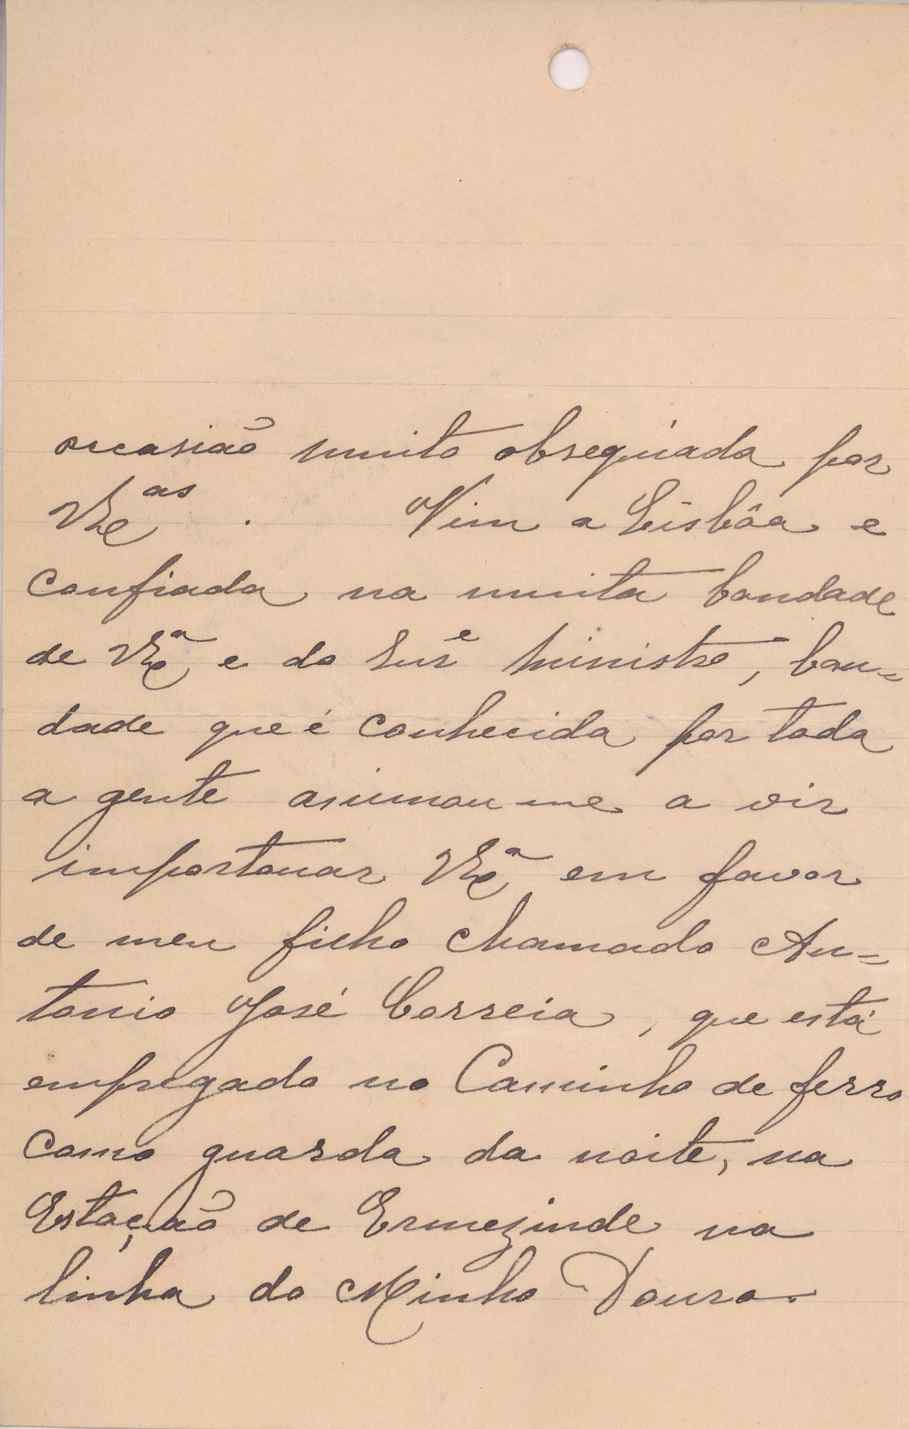 occasião muito obsequiada por
VExas. Vim a Lisbôa e
confiada na muita bondade
de VExa e do Snr ministro, bon=
dade que é conhecida por toda
a gente animou me a vir
importonar VExa em favor
de meu filho chamado An=
tonio José Correia, que está
empregado no Caminho de ferro
como guarda da noite, na
Estação de Ermezinde na
linha do Minho Douro.